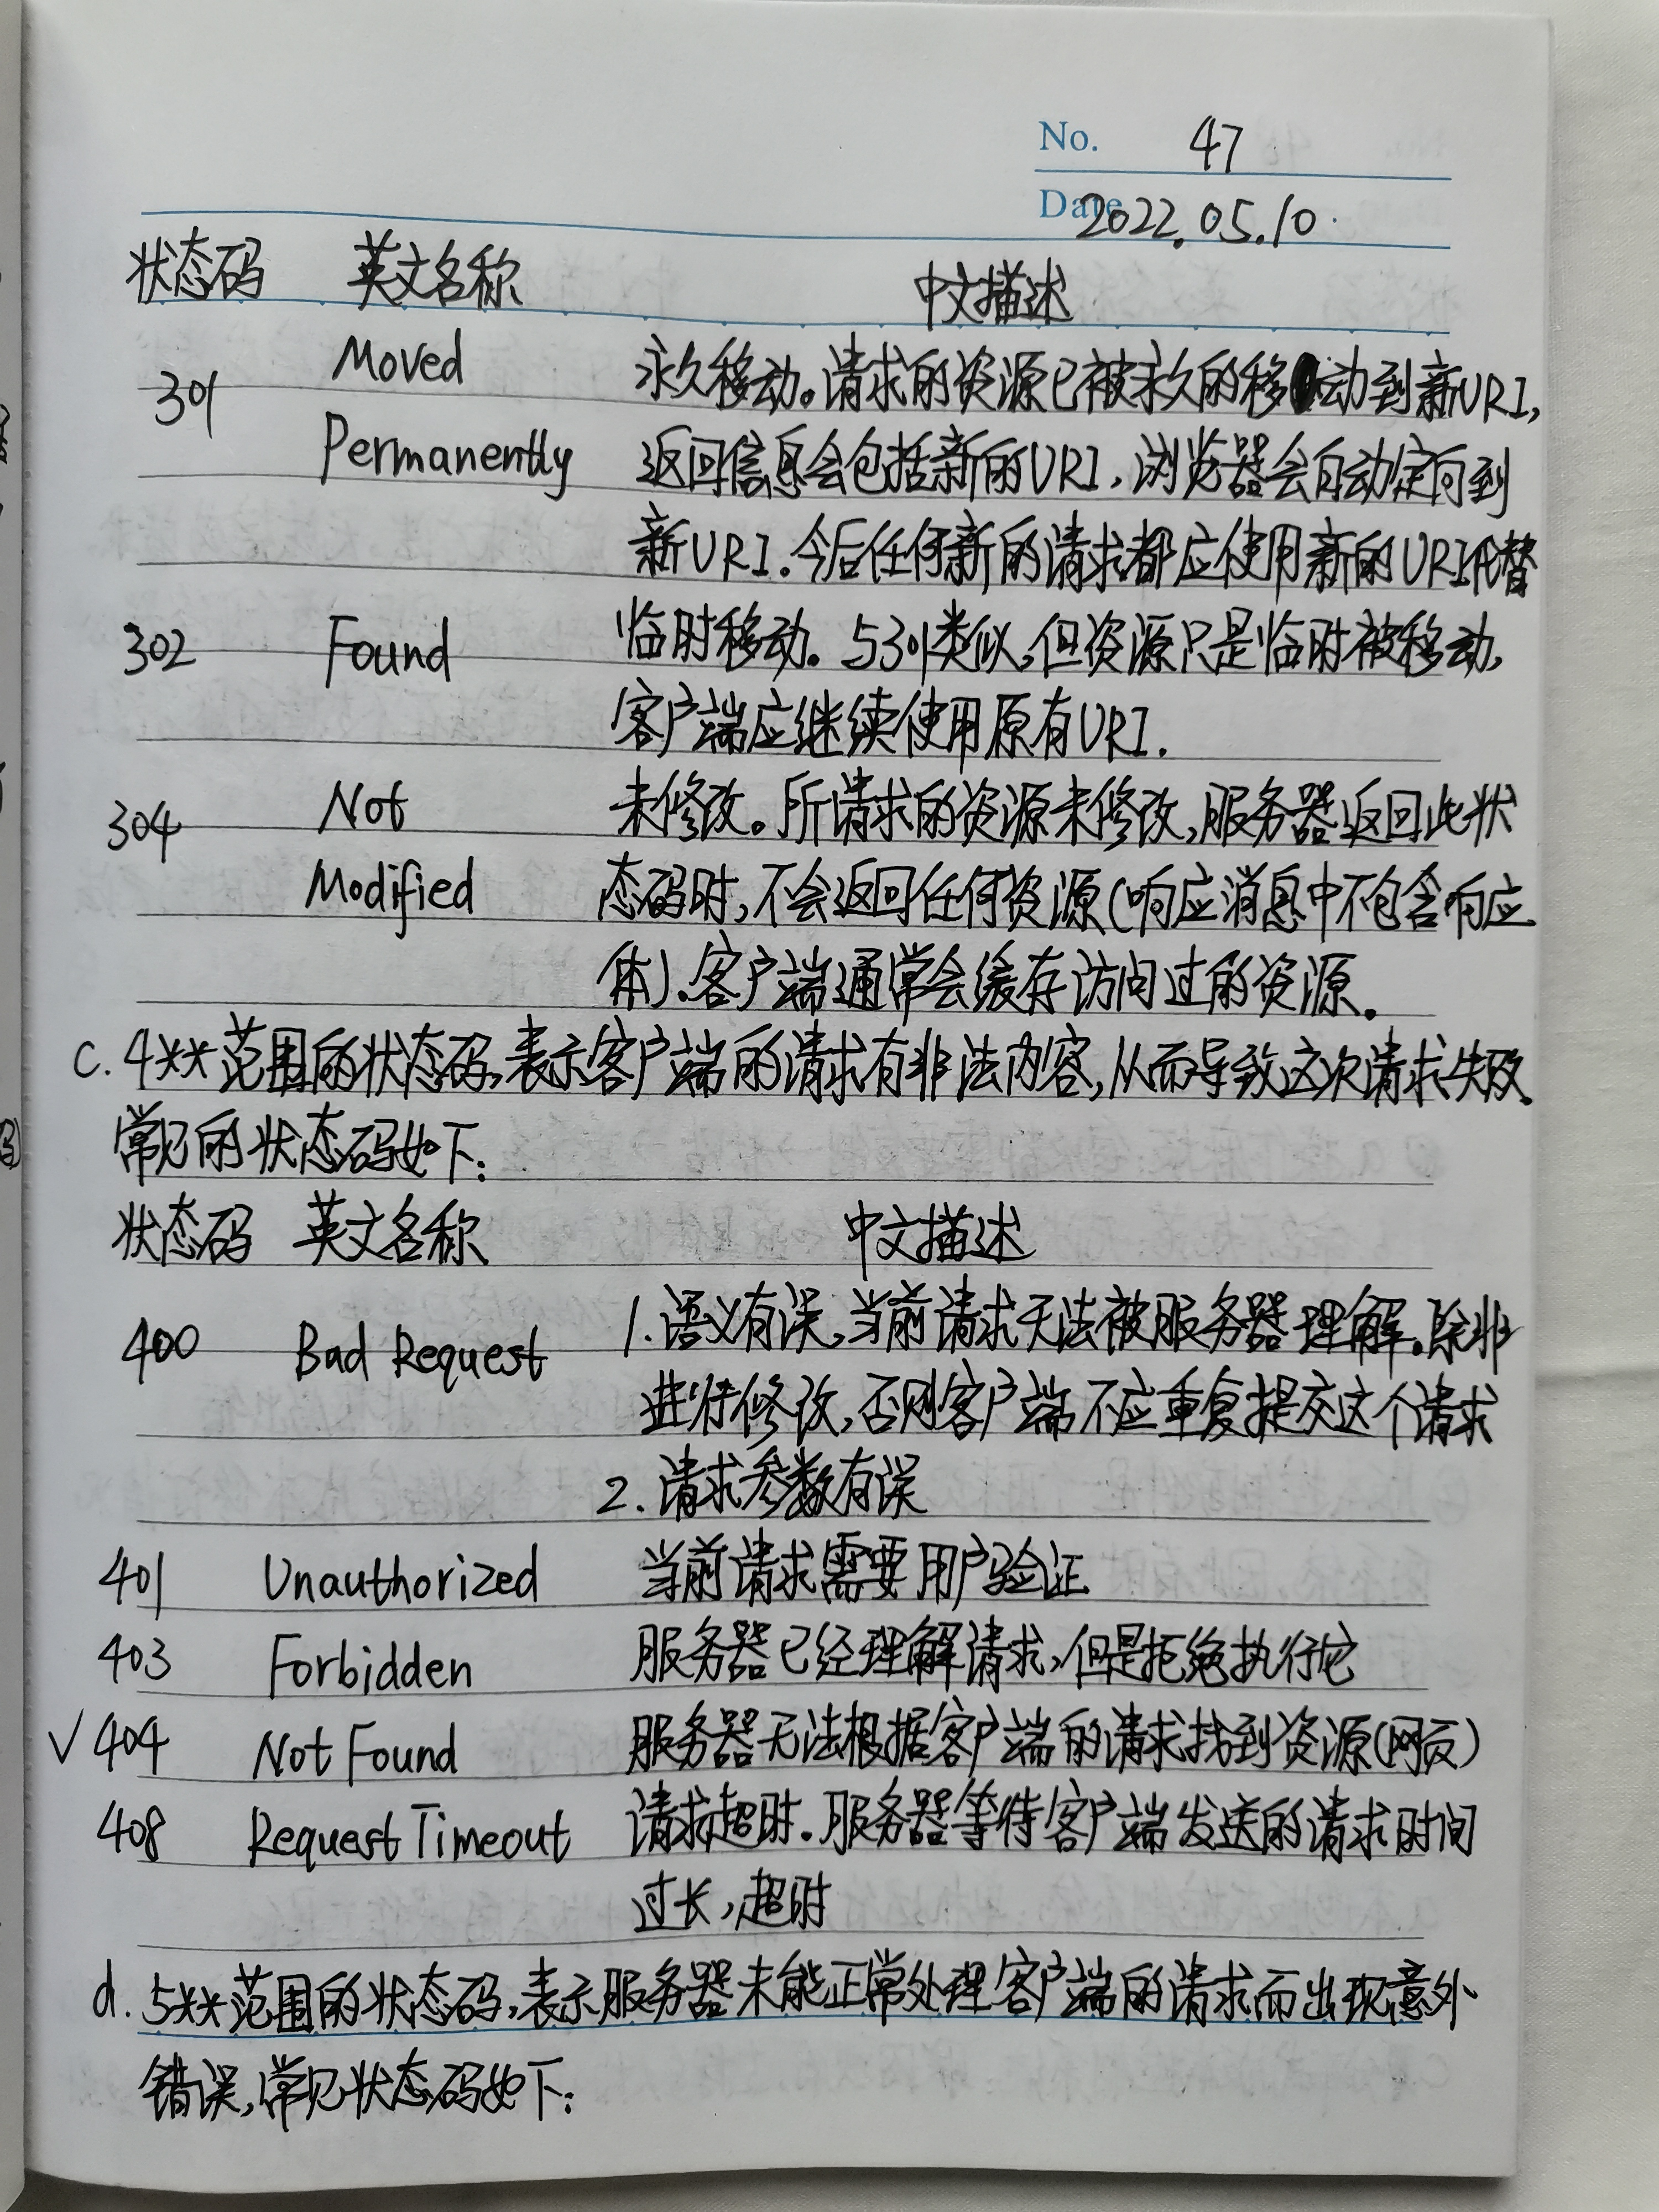 No. 47
Date 2022.05.10.
状态码 英文名称 中文描述
301 Moved 永久移动。请求的资源已被永久的移动到新URI,
Permanently 返回信息会包括新的URI,浏览器会自动定向到
新URI.今后任何新的请求都应使用新的URI代替
302 Found 临时移动。与301类似,但资源只是临时被移动,
客户端应继续使用原有URI.
304 Not 未修改。所请求的资源未修改,服务器返回此状
Modified 态码时,不会返回任何资源(响应消息中不包含响应
体).客户端通常会缓存访问过的资源。
c. 4**范围的状态码,表示客户端的请求有非法内容,从而导致这次请求失败.
常见的状态码如下:
状态码 英文名称 中文描述
400 Bad Request 1.语义有误,当前请求无法被服务器理解。除非
进行修改,否则客户端不应重复提交这个请求
2.请求参数有误
401 Unauthorized 当前请求需要用户验证
403 Forbidden 服务器已经理解请求,但是拒绝执行它
✓404 Not Found 服务器无法根据客户端的请求找到资源(网页)
408 Request Timeout 请求超时.服务器等待客户端发送的请求时间
过长,超时
d. 5**范围的状态码,表示服务器未能正常处理客户端的请求而出现意外
错误,常见状态码如下: